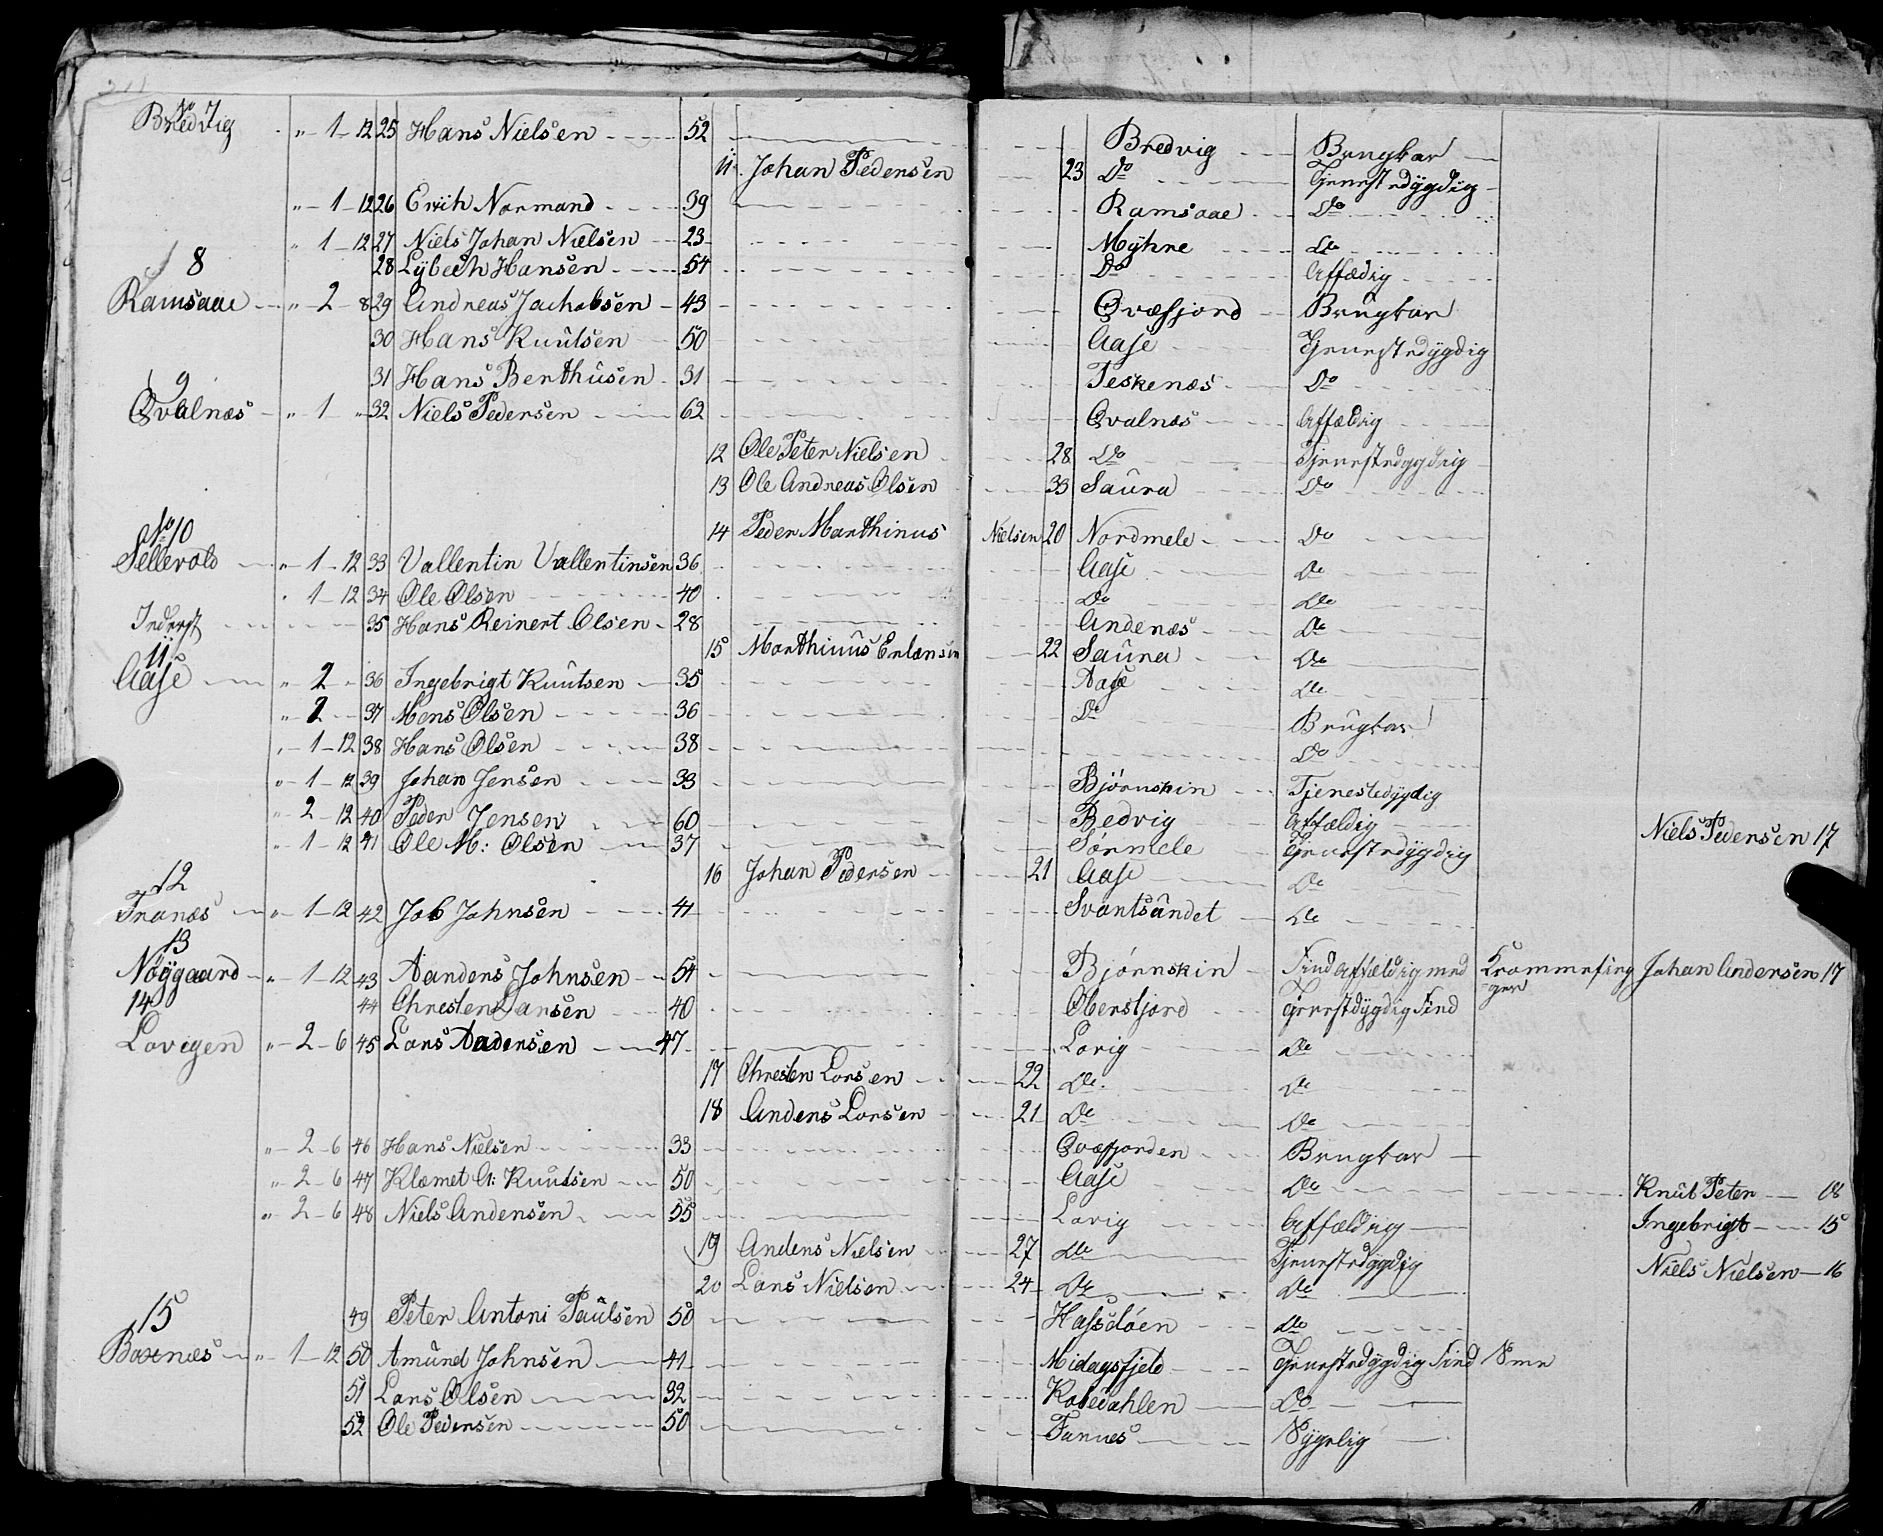 No 7
Bredvig " 1 - 12 25 Hans Nielsen 52 Bredvig Brugkar
11 Johan Pedersen 23 Do Tjenestdygdig
" 1 - 12 26 Erich Normand 39 Ramsaae Do
" 1 - 12 27 Niels Johan Nielsen 23 Myhre Do
8 28 Lybech Hansen 54 Do Affædig
Ramsaae " 2 - 8 29 Andreas Jachobsen 43 Qvæfjord Brugkar
30 Hans Knutsen 50 Aase Tjenestdygdig
31 Hans Berthusen 31 Teskenæs Do
9
Qvalnæs " 1 " 32 Niels Pedersen 62 Qvalnæs Affældig
12 Ole Peter Nielsen 28 Do Tjenestedygdig
13 Ole Andreas Olsen 33 Saura Do
No 10 14 Peder Marthinus Nielsen 20 Nordmele Do
Sellevold " 1 - 12 33 Vallentin Vallentinsen 36 Aase Do
" 1 - 12 34 Ole Olsen 40 Do Do
Inderst 35 Hans Reinert Olsen 28 Andenæs Do
11 15 Marthinus Erlansen 22 Saura Do
Aase " 2 " 36 Ingebrigt Knutsen 35 Aase Do
" 2 - 37 Mons Olsen 36 Do Brugkar
" 1 - 12 38 Hans Olsen 38 Do
" 1 - 12 39 Johan Jensen 33 Bjørnskin Tjenestedygdig
" 2 - 12 40 Peder Jensen 60 Bedvig Affældig Niels Pedersen 17
" 1 - 12 41 Ole M: Olsen 37 Sørmele Tjenestedygdig
12 16 Johan Pedersen 21 Aase Do
Tranæs " 1 - 12 42 Job Johnsen 41 Svartsundet Do
13
Nøygaard " 1 - 12 43 Aanders Johnsen 54 Bjørnskin Find affældig med Krommefing Johan Andersen 17
-ger
14 44 Chresten Larsen 40 Oberstjord Tjenestdygdig Find
Lovigen " 2 - 6 45 Lars Aadersen 47 Lovig Do
17 Chresten Larsen 22 Do Do
18 Anders Larsen 21 Do Do
" 2 - 6 46 Hans Nielsen 33 Qvæfjorden Brugkar
" 2 - 6 47 Klæmet A: Knutsen 50 Aase Do Knut Peter 18
" 2 - 6 48 Niels Andersen 55 Lovig Affældig Ingebrigt 15
19 Anders Nielsen 27 Do Tjenestedygdig Niels Nielsen 16
20 Lars Nielsen 24 Do Do
15 49 Peter Antoni Paulsen 50 Do
" 1 - 12 50 Amund Johnsen 41 Midagsfjeld Tjenestedygdig Find
51 Lars Olsen 32 Kobedahlen Do
52 Ole Pedersen 50 Sygelig